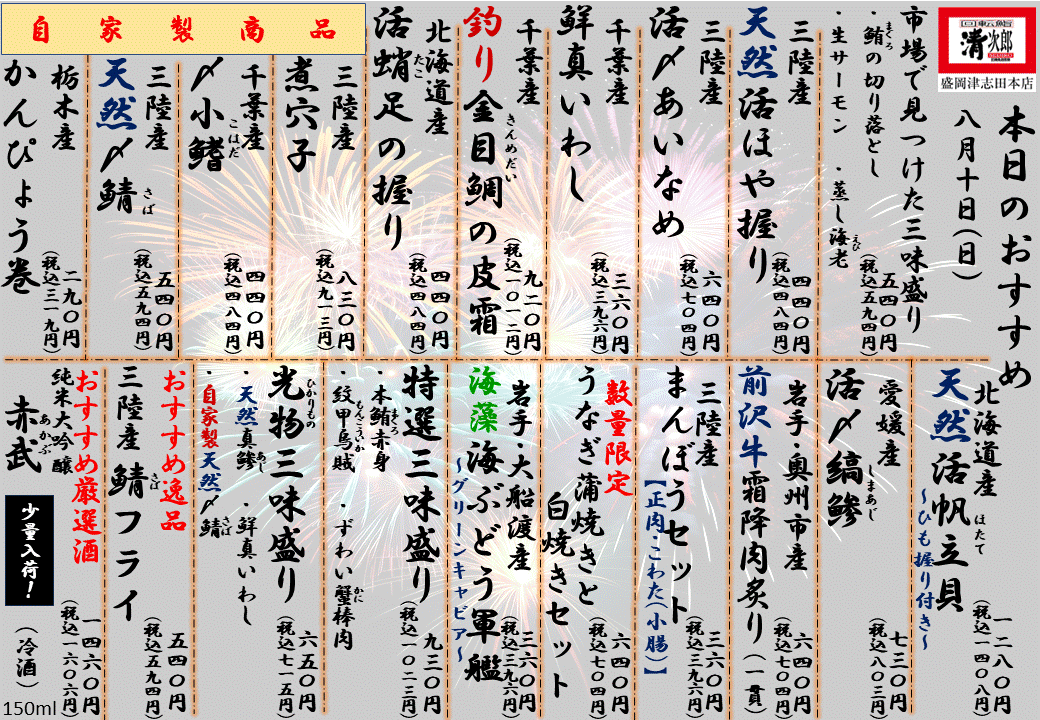 回転鮨
清次郎
盛岡津志田本店
本日のおすすめ
八月十日(日)
市場で見つけた三味盛り
・鮪の切り落とし
まぐろ
・生サーモン ・蒸し海老
えび
五四〇円
(税込五九四円)
三陸産
天然活ほや握り
四四〇円
(税込四八四円)
三陸産
活〆あいなめ
六四〇円
(税込七〇四円)
千葉産
鮮真いわし
三六〇円
(税込三九六円)
千葉産
釣り金目鯛の皮霜
きんめだい
九二〇円
(税込一〇一二円)
北海道産
活蛸足の握り
たこ
四四〇円
(税込四八四円)
自家製商品
三陸産
煮穴子
八三〇円
(税込九一三円)
千葉産
〆小鰭
こはだ
四四〇円
(税込四八四円)
三陸産
天然〆鯖
さば
五四〇円
(税込五九四円)
栃木産
かんぴょう巻
二九〇円
(税込三一九円)
北海道産
天然活帆立貝
ほたて
~ひも握り付き~
一二八〇円
(税込一四〇八円)
愛媛産
活〆縞鯵
しまあじ
七三〇円
(税込八〇三円)
岩手・奥州市産
前沢牛霜降肉炙り(一貫)
六四〇円
(税込七〇四円)
三陸産
まんぼうセット
【正肉・こわた(小腸)】
三六〇円
(税込三九六円)
数量限定
うなぎ蒲焼きと
白焼きセット
六四〇円
(税込七〇四円)
岩手・大船渡産
海藻海ぶどう軍艦
~グリーンキャビア~
三六〇円
(税込三九六円)
特選三味盛り
・本鮪赤身
まぐろ
・ずわい蟹棒肉
かに
・紋甲烏賊
もんごういか
九三〇円
(税込一〇二三円)
光物三味盛り
ひかりもの
・天然真鯵 ・鮮真いわし
あじ
・自家製天然〆鯖
さば
六五〇円
(税込七一五円)
おすすめ逸品
三陸産 鯖フライ
さば
五四〇円
(税込五九四円)
おすすめ厳選酒
純米大吟醸
赤武
あかぶ
少量入荷!
一四六〇円
(税込一六〇六円)
(冷酒)
150ml